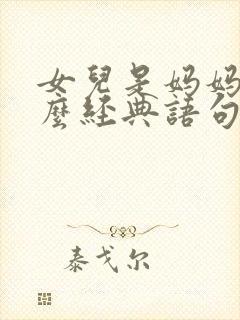 女兒是媽媽
麼經典語句
泰戈尔